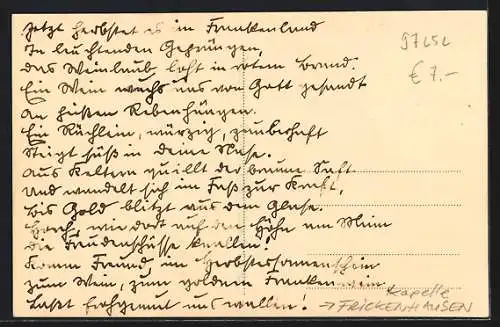 Jetzt herbstet es im Frankenland
In leuchtenden Gepränge,
das Weinlaub loht in rotem Brand.
Ein Wein wuchs uns von Gott gesandt
An heißen Rebenhängen.
Ein Rüchlein, würzig, zauberhaft
Steigt süß in deine Nase.
Aus Keltern quillt der braune Saft
Und wandelt sich im Faß zur Kraft,
bis Gold blitzt aus dem Glase.
Horch, wie dort auf den Höhn am Main
die Freudenschüsse knallen!
Komm Freund, im Herbstsonnenschein
zum Wein, zum goldnen Frankenwein
Laßt frohgemut uns wallen!
97252
€ 7.-
Kapelle
→ FRICKENHAUSEN